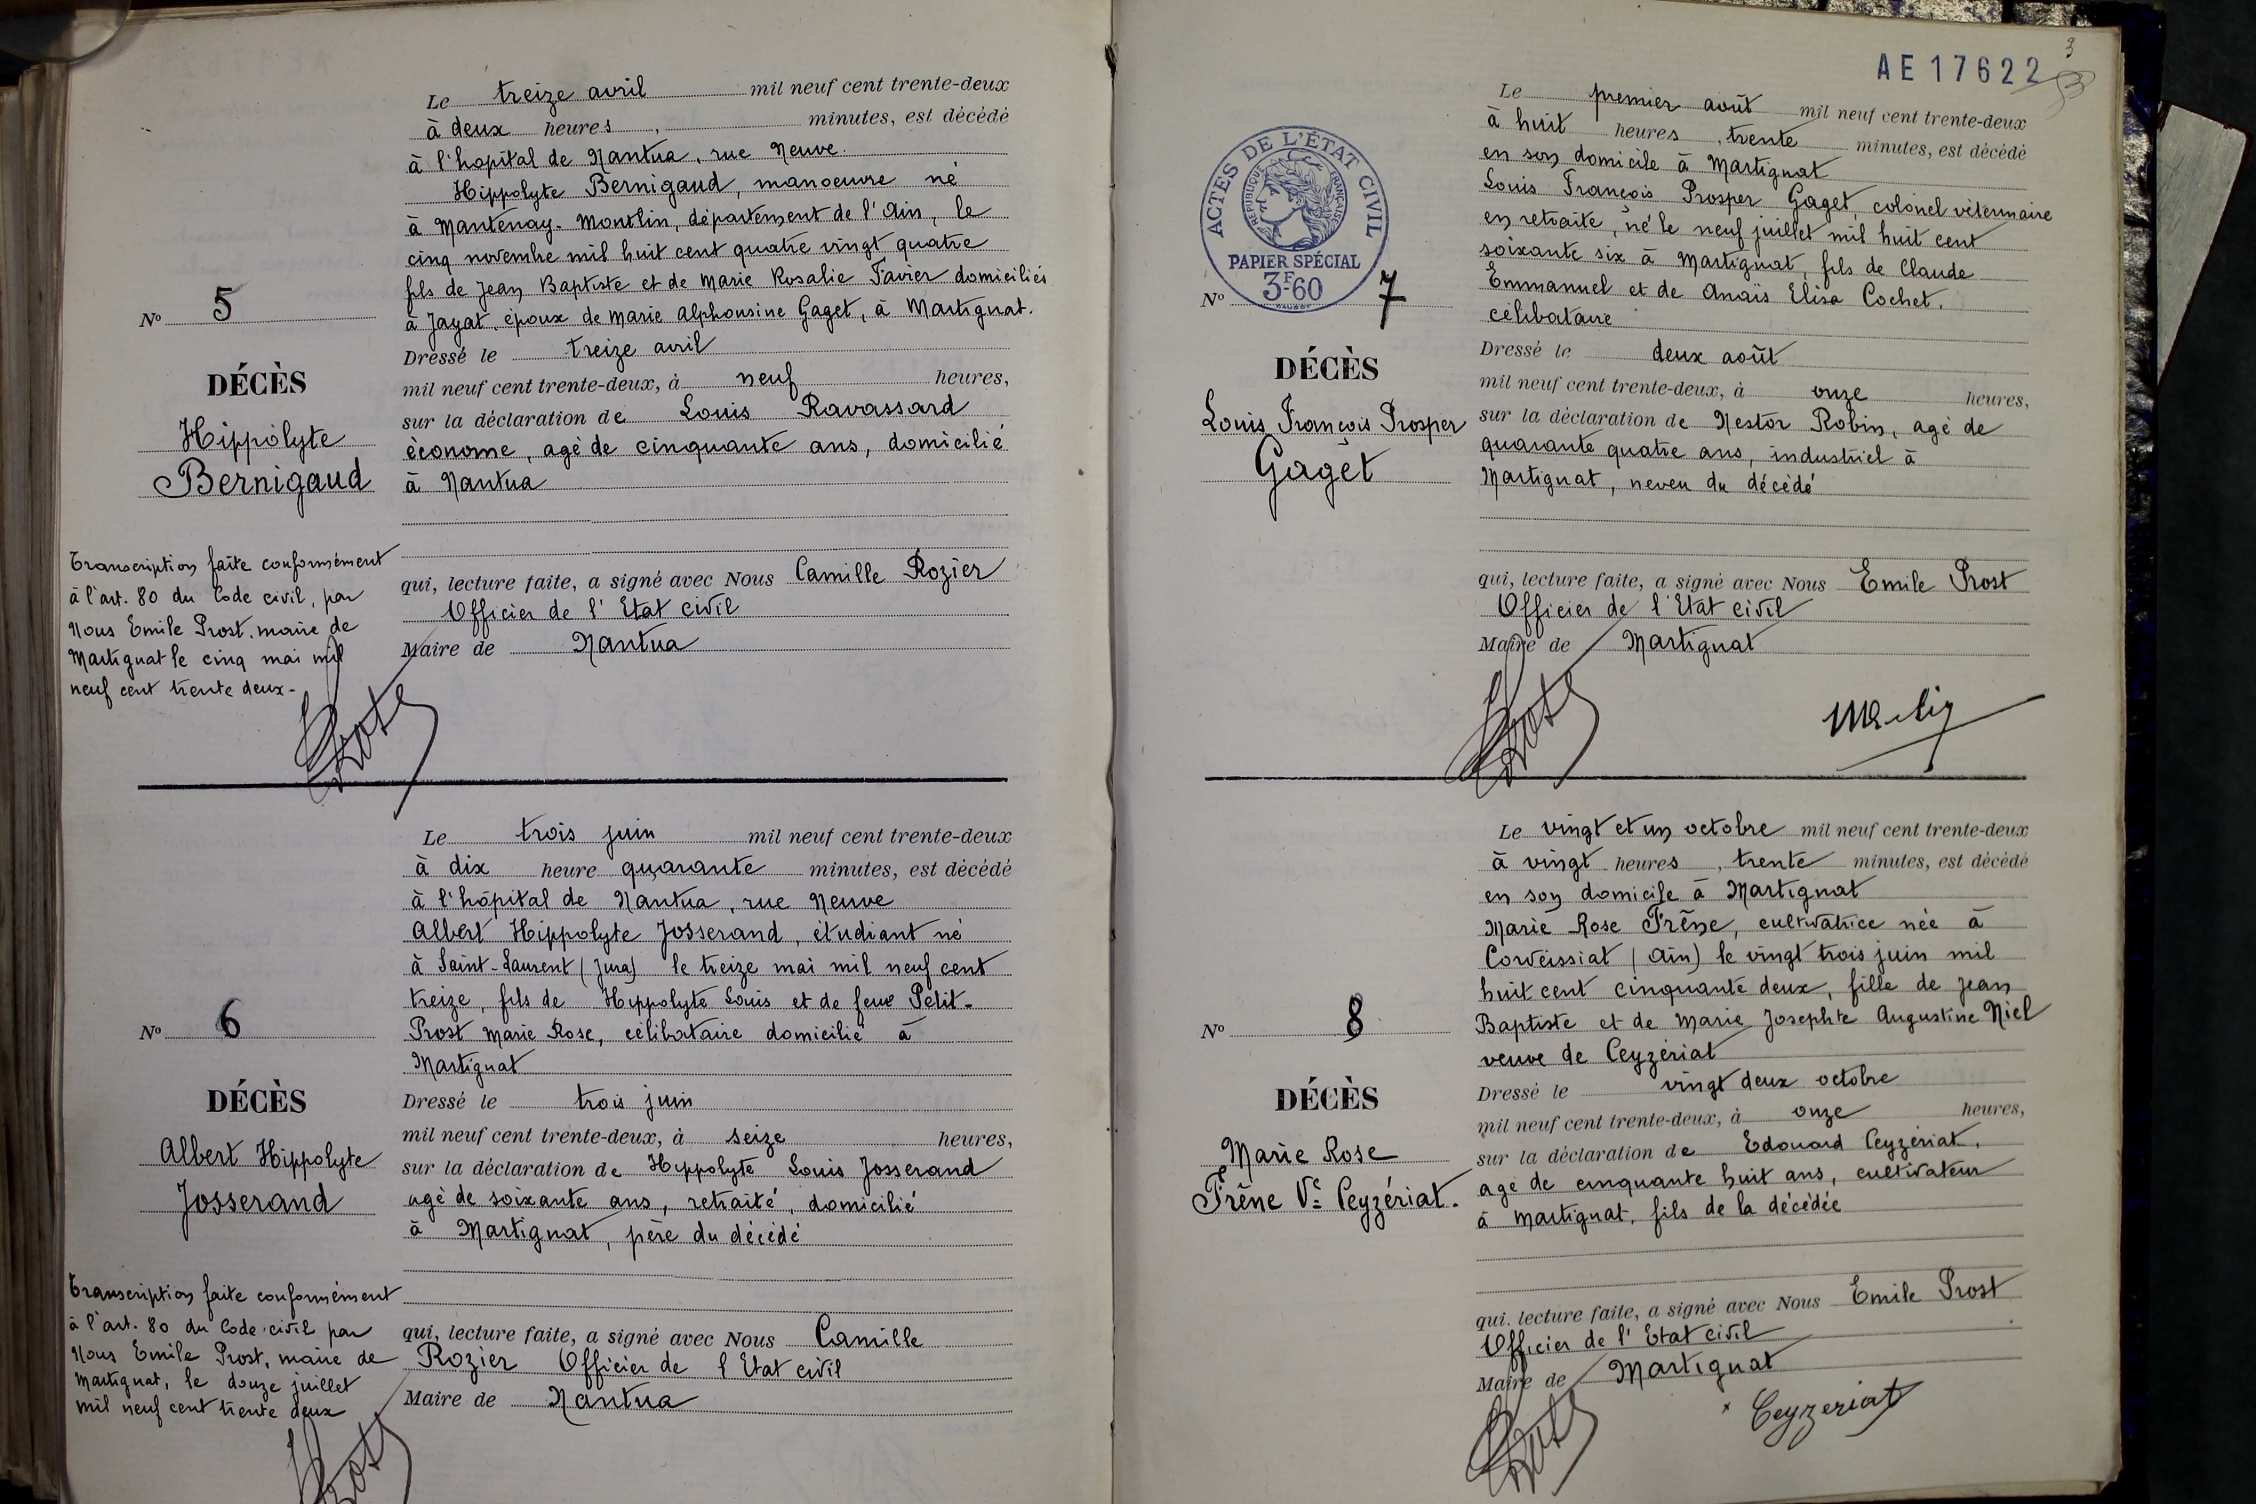 Le treize avril mil neuf cent trente-deux
à deux heures, minutes, est décédé
à l'hopital de Nantua, rue Neuve.
Hippolyte Bernigaud, manoeuvre né
à Mantenay-Montlin, département de l'Ain, le
cinq novembre mil huit cent quatre vingt quatre
fils de Jean Baptiste et de Marie Rosalie Favier domiciliés
à Jayat, époux de Marie Alphonsine Gaget, à Martignat.
Nº 5
Dressé le treize avril
DÉCÈS
mil neuf cent trente-deux, à neuf heures,
sur la déclaration de Louis Ravassard
Hippolyte
économe, agé de cinquante ans, domicilié
Bernigaud
à Nantua
Transcription faite conformément
à l'art. 80 du Code civil, par
Nous Emile Prost, maire de
Martignat le cinq mai mil
neuf cent trente deux-
qui, lecture faite, a signé avec Nous Camille Rozier
Officier de l'Etat civil
Maire de Nantua
Prost
Le trois juin mil neuf cent trente-deux
à dix heure quarante minutes, est décédé
à l'hôpital de Nantua, rue Neuve
Albert Hippolyte Josserand, étudiant né
à Saint-Laurent (Jura) le treize mai mil neuf cent
treize, fils de Hippolyte Louis et de feue Petit-
Prost Marie Rose, célibataire domicilié à
Martignat
Nº 6
Dressé le trois juin
DÉCÈS
mil neuf cent trente-deux, à seize heures,
Albert Hippolyte
sur la déclaration de Hippolyte Louis Josserand
Josserand
agé de soixante ans, retraité, domicilié
à Martignat, père du décédé
Transcription faite conformément
à l'art. 80 du Code civil par
Nous Emile Prost, maire de
Martignat, le douze juillet
mil neuf cent trente deux
qui, lecture faite, a signé avec Nous Camille
Rozier Officier de l Etat civil
Maire de Nantua
Prost
AE17622
3
Le premier août mil neuf cent trente-deux
à huit heures, trente minutes, est décédé
en son domicile à Martignat
Louis François Prosper Gaget, colonel vétérinaire
en retraite, né le neuf juillet mil huit cent
soixante six à Martignat, fils de Claude
Emmanuel et de Anaïs Elisa Cochet.
célibataire
ACTES DE L'ÉTAT CIVIL
RÉPUBLIQUE FRANÇAISE
PAPIER SPÉCIAL
3F60
Nº 7
Dressé le deux août
DÉCÈS
mil neuf cent trente-deux, à onze heures,
Louis François Prosper
sur la déclaration de Nestor Robin, agé de
Gaget
quarante quatre ans, industriel à
Martignat, neveu du décédé
qui, lecture faite, a signé avec Nous Emile Prost
Officier de l'Etat civil
Maire de Martignat
Prost
Le vingt et un octobre mil neuf cent trente-deux
à vingt heures, trente minutes, est décédé
en son domicile à Martignat
Marie Rose Frêne, cultivatrice née à
Corveissiat (Ain) le vingt trois juin mil
huit cent cinquante deux, fille de Jean
Baptiste et de Marie Josephte Augustine Niel
veuve de Ceyzériat
Nº 8
Dressé le vingt deux octobre
DÉCÈS
mil neuf cent trente-deux, à onze heures,
Marie Rose
sur la déclaration de Edouard Ceyzériat,
Frêne Ve Ceyzériat.
agé de cinquante huit ans, cultivateur
à Martignat, fils de la décédée
qui, lecture faite, a signé avec Nous Emile Prost
Officier de l'Etat civil
Maire de Martignat
Prost
Ceyzeriat